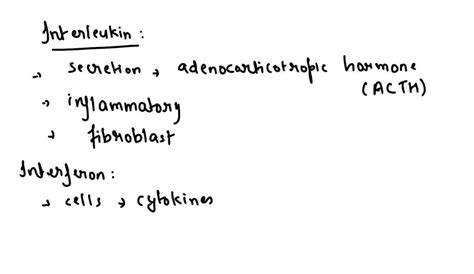 Interleukin :
→ secretion → adenocarticotropic harmone
(ACTH)
→ inflammatory
→ fibroblast
Interferon :
→ cells → cytokines